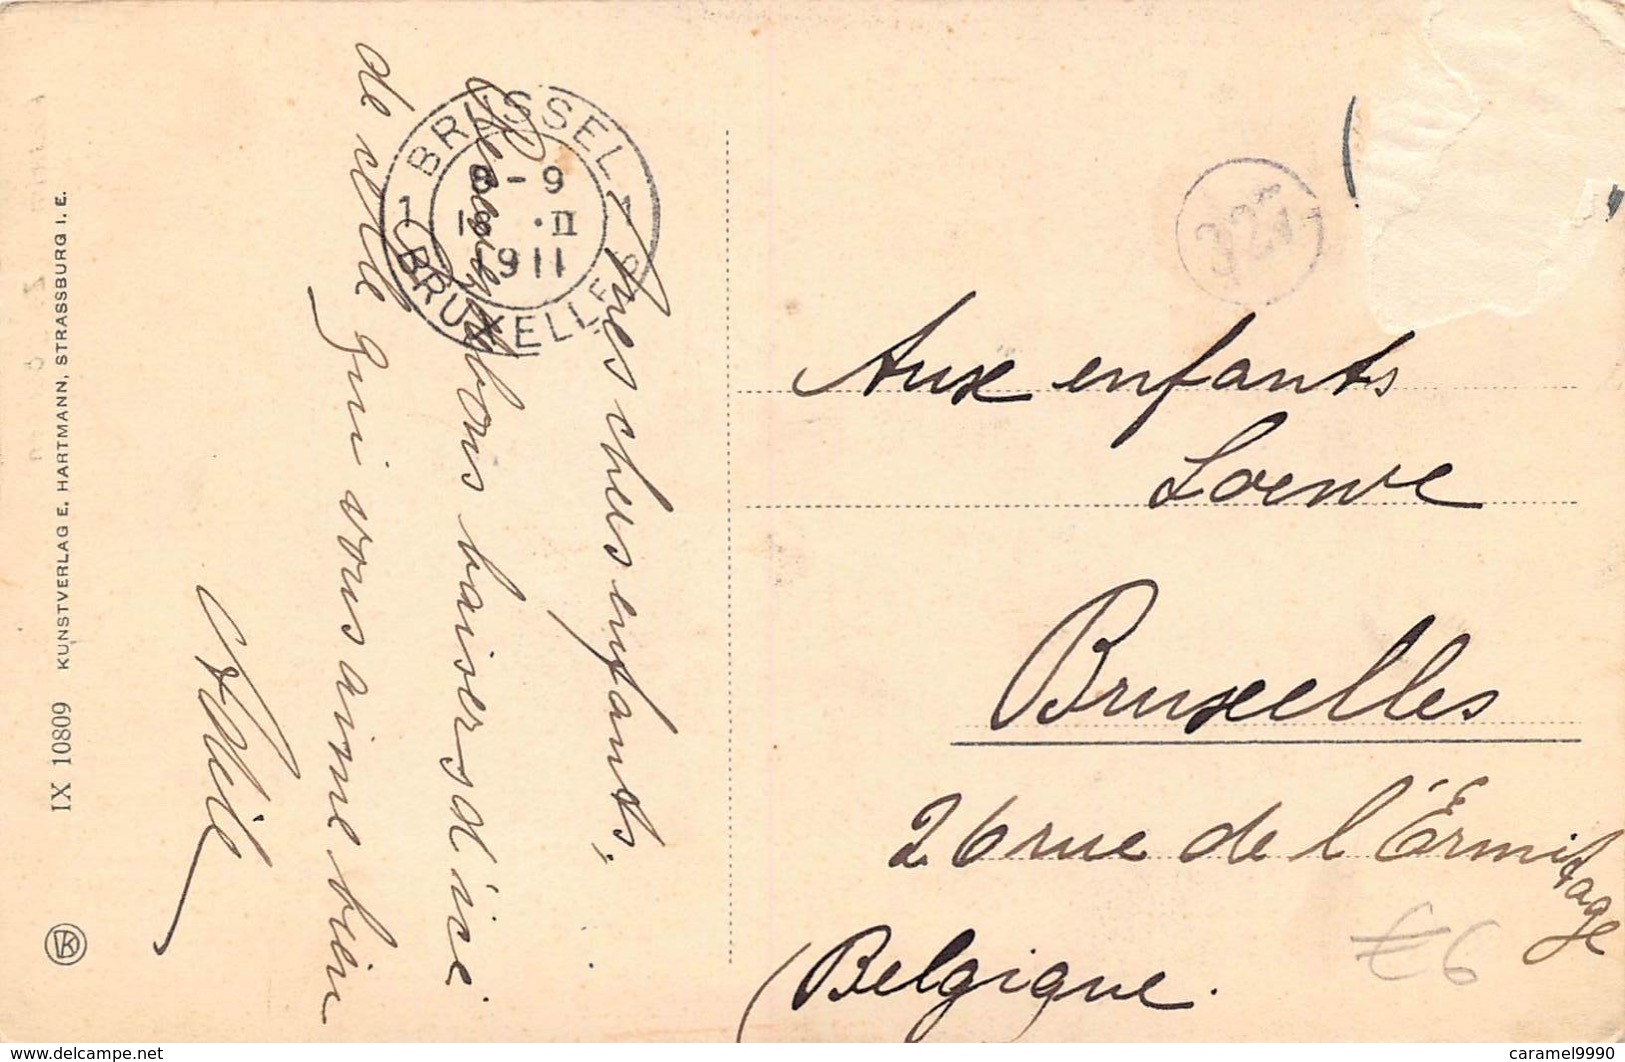 mes chers enfants,
bons baisers d'ici
de celle qui vous aime bien
BRUSSEL
1 1
8-9
II
1911
BRUXELLES
IX 10809 KUNSTVERLAG E. HARTMANN, STRASSBURG I. E.
327
Aux enfants
Loewe
Bruxelles
26 rue de l'Ermitage
(Belgique.
€6
www.delcampe.net
caramel9990